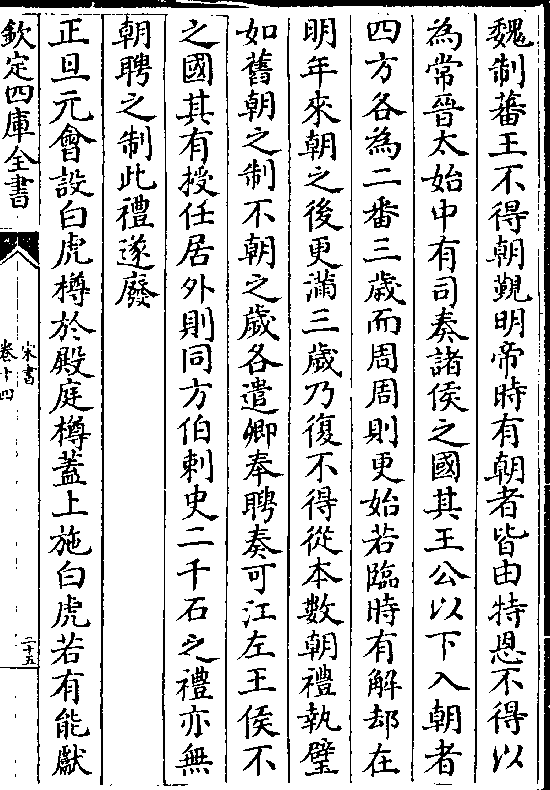 魏制蕃王不得朝覲明帝時有朝者皆由特恩不得以
為常晉太始中有司奏諸侯之國其王公以下入朝者
四方各為二番三歳而周周則更始若臨時有解却在
明年來朝之後更滿三歳乃復不得從本數朝禮執璧
如舊朝之制不朝之歳各遣卿奉聘奏可江左王侯不
之國其有授任居外則同方伯刺史二千石之禮亦無
朝聘之制此禮遂廢
正旦元會設白虎樽於殿庭樽蓋上施白虎若有能獻
欽定四庫全書
宋書
卷十四
二十五